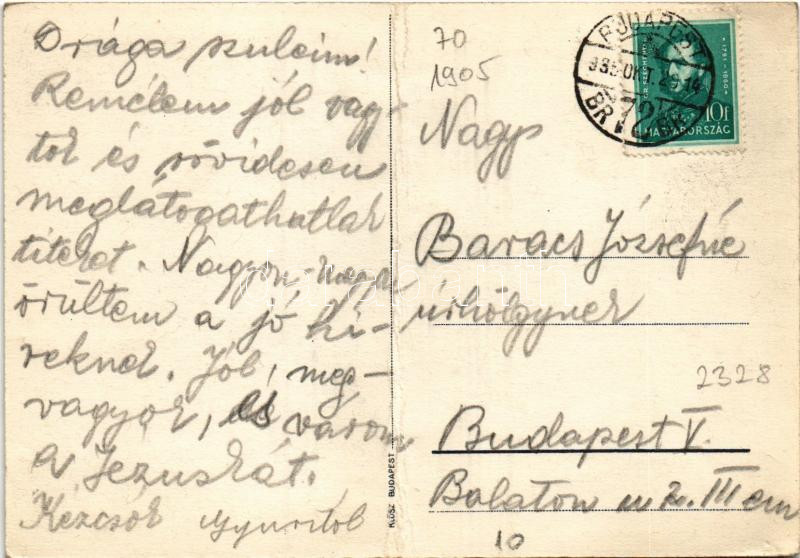 Drága szuleim!
Remélem jól vagy-
tok és rövidesen
meglátogathatlak
titeket. Nagyon meg
örültem a jó hí-
reknek. Jól, meg-
vagyok, és várom
a Jezuskát.
Kézcsók Gyuritól
KLÖSZ BUDAPEST
70
1905
BUDAPEST
10f
MAGYARORSZÁG
Nagys
Baracs Józsefné
úrhölgynek
2328
Budapest V.
Balaton u 2. III em
10